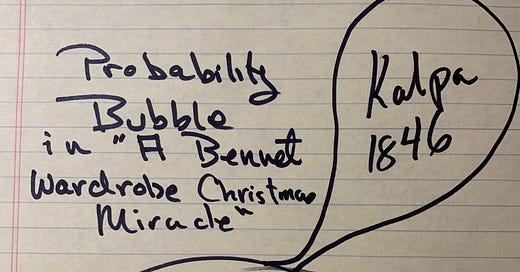 Probability
Bubble
in "A Bennet
Wardrobe Christmas
Miracle"
Kalpa
1846